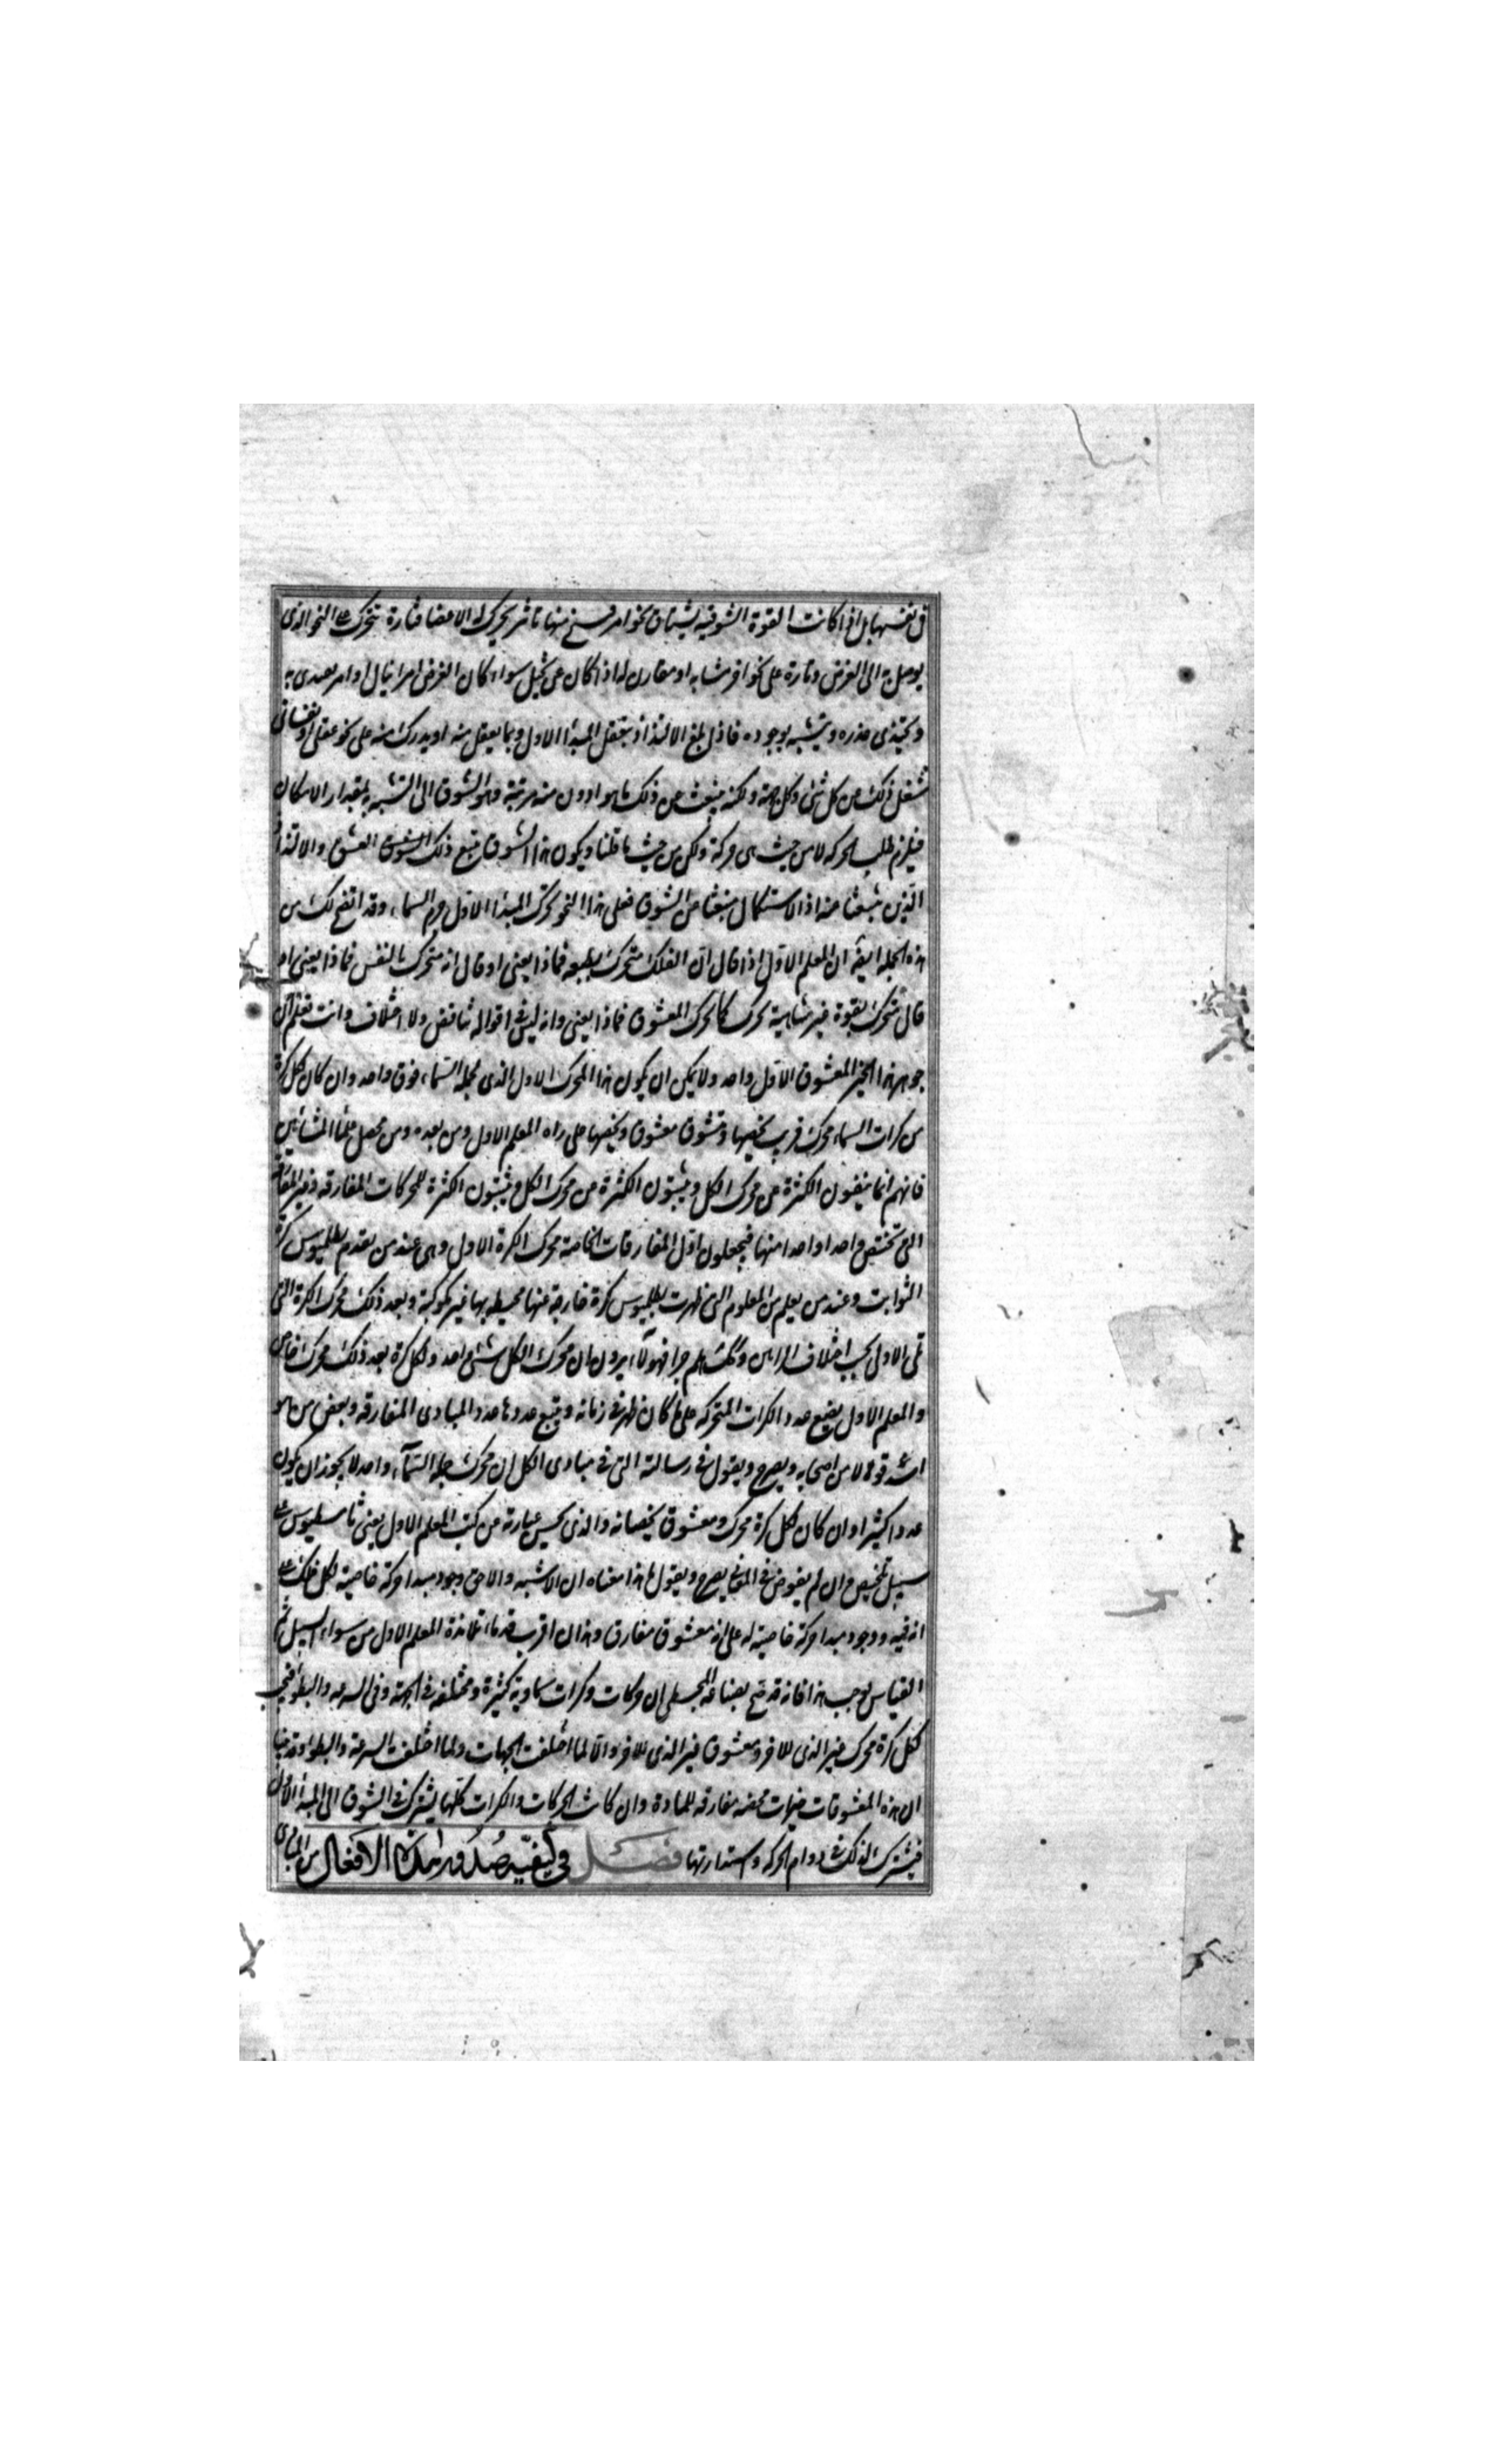 فى نفسها بل اذا كانت القوة الشوقيه يشتاق نحو امر يسنح منها تاثر يحرك له الاعضا فتارة تتحرك على النحو الذى
يوصل به الى الغرض وتارة على نحو اخر مشابه او مقارن له اذا كان عن تخيل سواء كان الغرض امرا ينال او امر يقتدى به
ويحتذى حذوه ويتشبه بوجوده فاذا بلغ الالتذاذ بتعقل المبدا الاول وبما يعقل منه او يدرك منه على نحو عقلى او نفسانى
شغل ذلك عن كل شئ وكل جهة ولكنه ينبعث عن ذلك ما هو ادون منه مرتبة وهو الشوق الى التشبه به بمقدار الامكان
فيلزم طلب الحركه لا من حيث هى حركة ولكن من حيث ما قلنا ويكون هذا الشوق تبع ذلك العشق والالتذاذ
الذين منبعثا منه اذ الاستكمال منبعثا من الشوق فعلى هذا النحو تحرك المبدا الاول جرم السماء وقد اتضح لك من
هذه الجمله ايضه ان المعلم الاول اذا قال ان الفلك متحرك بطبعه فماذا يعنى او قال انه متحرك بالنفس فماذا يعنى او
قال متحرك بقوة غير متناهية تحرك كما تحرك المعشوق فماذا يعنى وانه ليس فى اقواله تناقض ولا اختلاف وانت تعلم ان
جوهر هذا الخير المعشوق الاول واحد ولا يمكن ان يكون هذا المحرك الاول الذى لجمله السماء فوق واحد وان كان لكل كرة
من كرات السماء محرك قريب يخصها ومتشوق معشوق ويخصها على راه المعلم الاول ومن بعده ومن محصل علما المشائين
فانهم انما ينفون الكثرة عن محرك الكل ويثبتون الكثرة عن محرك الكل ويثبتون الكثرة للمحركات المفارقه وغير المفارقة
التى تختص واحدا واحدا منها فيجعلون اول المفارقات الخاصة محرك الكرة الاول وهى عند من تقدم بطلميوس كرة
الثوابت وعند من يعلم من العلوم التى ظهرت بطلميوس كرة خارجة عنها محيطه بها غير مكوكبة وبعد ذلك محرك الكرة التى
تلى الاول بحسب اختلاف الرايين وكك هلم جرا فهولآء يرون ان محرك الكل شئ واحد ولكل كرة بعد ذلك محرك خاص
والمعلم الاول يضع عدد الكرات المتحركه على ما كان ظهر فى زمانه ويتبع عددها عدد المبادى المفارقه وبعض من هو
اشد قولا من اصحابه ويصرح ويقول فى رسالته التى فى مبادى الكل ان محرك جمله السمآء واحد لا يجوز ان يكون
عددا كثيرا وان كان لكل كرة محرك ومعشوق يخصانه والذى يحسن عبارته عن كتب المعلم الاول يعنى ثامسطيوس على
سبيل تلخيص وان لم يغوص فى المعانى يصرح ويقول ما هذا معناه ان الاشبه والاحق وجود مبدا حركة خاصية لكل فلك على
انه فيه ووجود مبدا حركة خاصية له على انه معشوق مفارق وهذان اقرب قدماء تلامذة المعلم الاول من سواء السبيل ثم
القياس يوجب هذا فانه قد صح بصناعة المجسطى ان حركات وكرات سماوية كثيرة ومختلفه فى الجهة وفى السرعه والبطؤ فيجب
لكل كرة محرك غير الذى للاخر ومعشوق غير الذى للاخر والا لما اختلفت الجهات ولما اختلفت السرعة والبطؤ وقد بينا
ان هذه المعشوقات خيرات محضه مفارقه للمادة وان كانت الحركات والكرات كلها يشترك فى الشوق الى المبدا الاول
فيشترك لذلك فى دوام الحركه واستدارتها فصل فى كيفية صدور هذه الافعال من المبادى